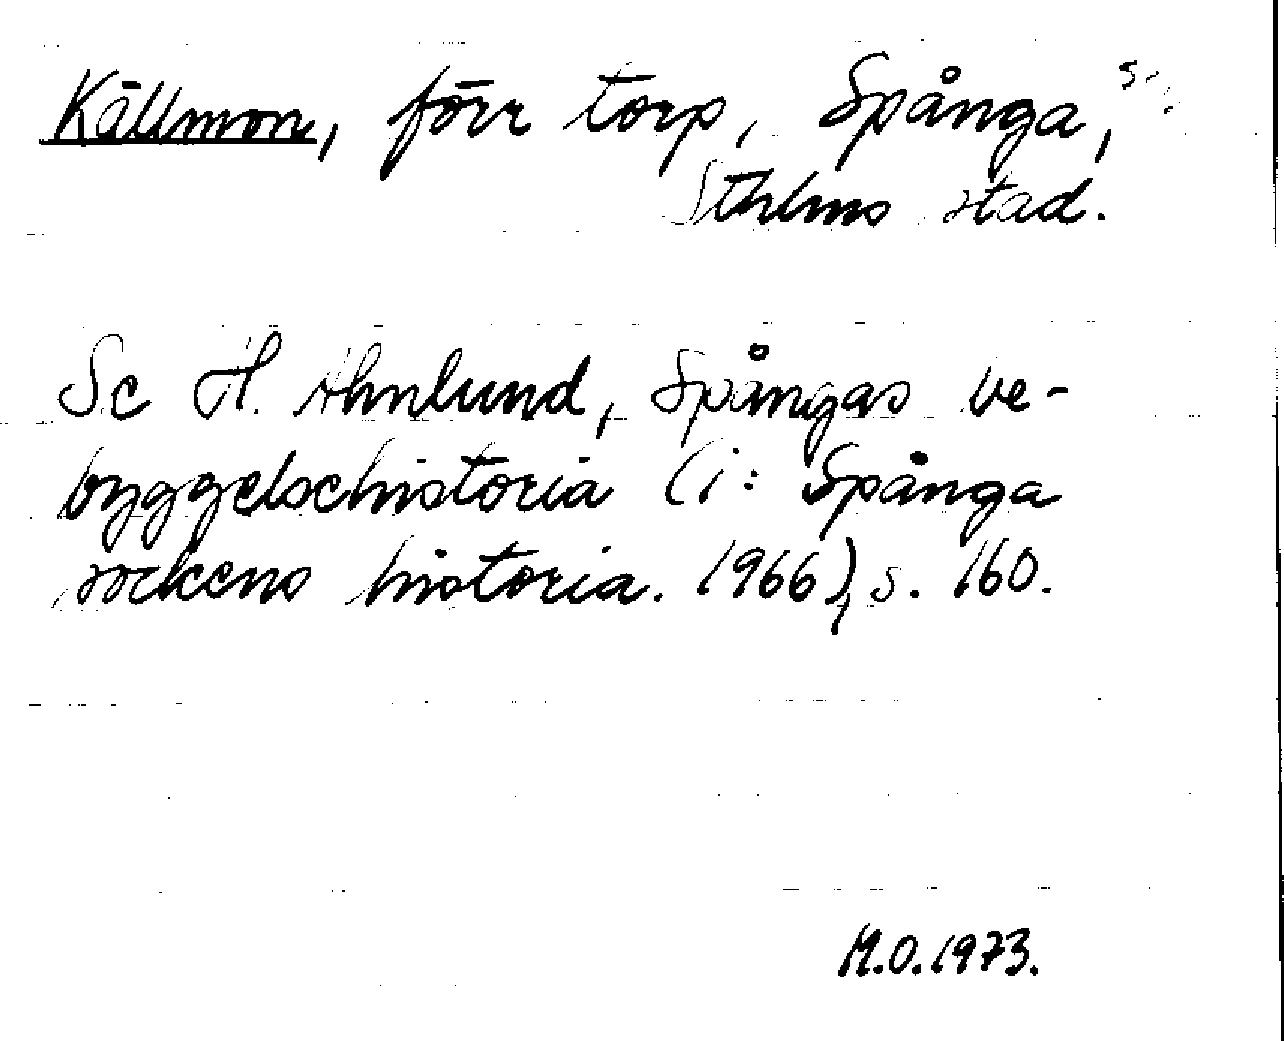 Källmon, förr torp, Spånga,
Sthlms stad.
Se H. Ahnlund, Spångas be-
byggelsehistoria (i: Spånga
sockens historia. 1966), s. 160.
M.O.1973.